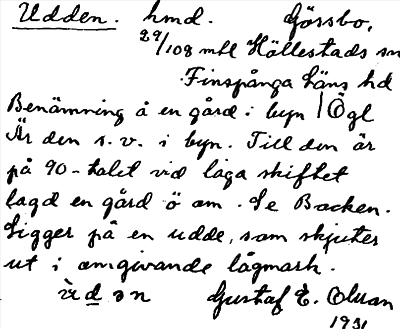 Udden. hmd. Görsbo,
29/108 mtl Hällestads sn
Finspånga läns hd
Benämning å en gård i byn | Ögl
Är den s.v. i byn. Till den är
på 90-talet vid laga skiftet
lagd en gård ö om. Se Backen.
Ligger på en udde, som skjuter
ut i omgivande lågmark.
Gustaf E. Olsson
1931